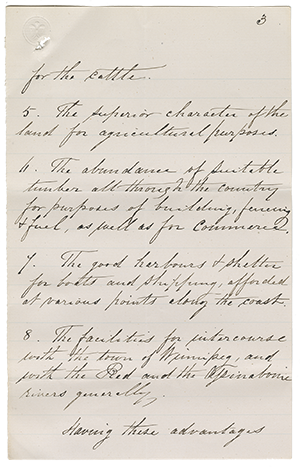 3
for the cattle.
5. The superior character of the
land for agricultural purposes.
6. The abundance of suitable
timber all through the country
for purposes of building, fencing
& fuel, as well as for Commerce.
7. The good harbours & shelter
for boats and shipping, afforded
at various points along the coast.
8. The facilities for intercourse
with the town of Winnipeg, and
with the Red and the Assinaboine
rivers generally.
Having these advantages